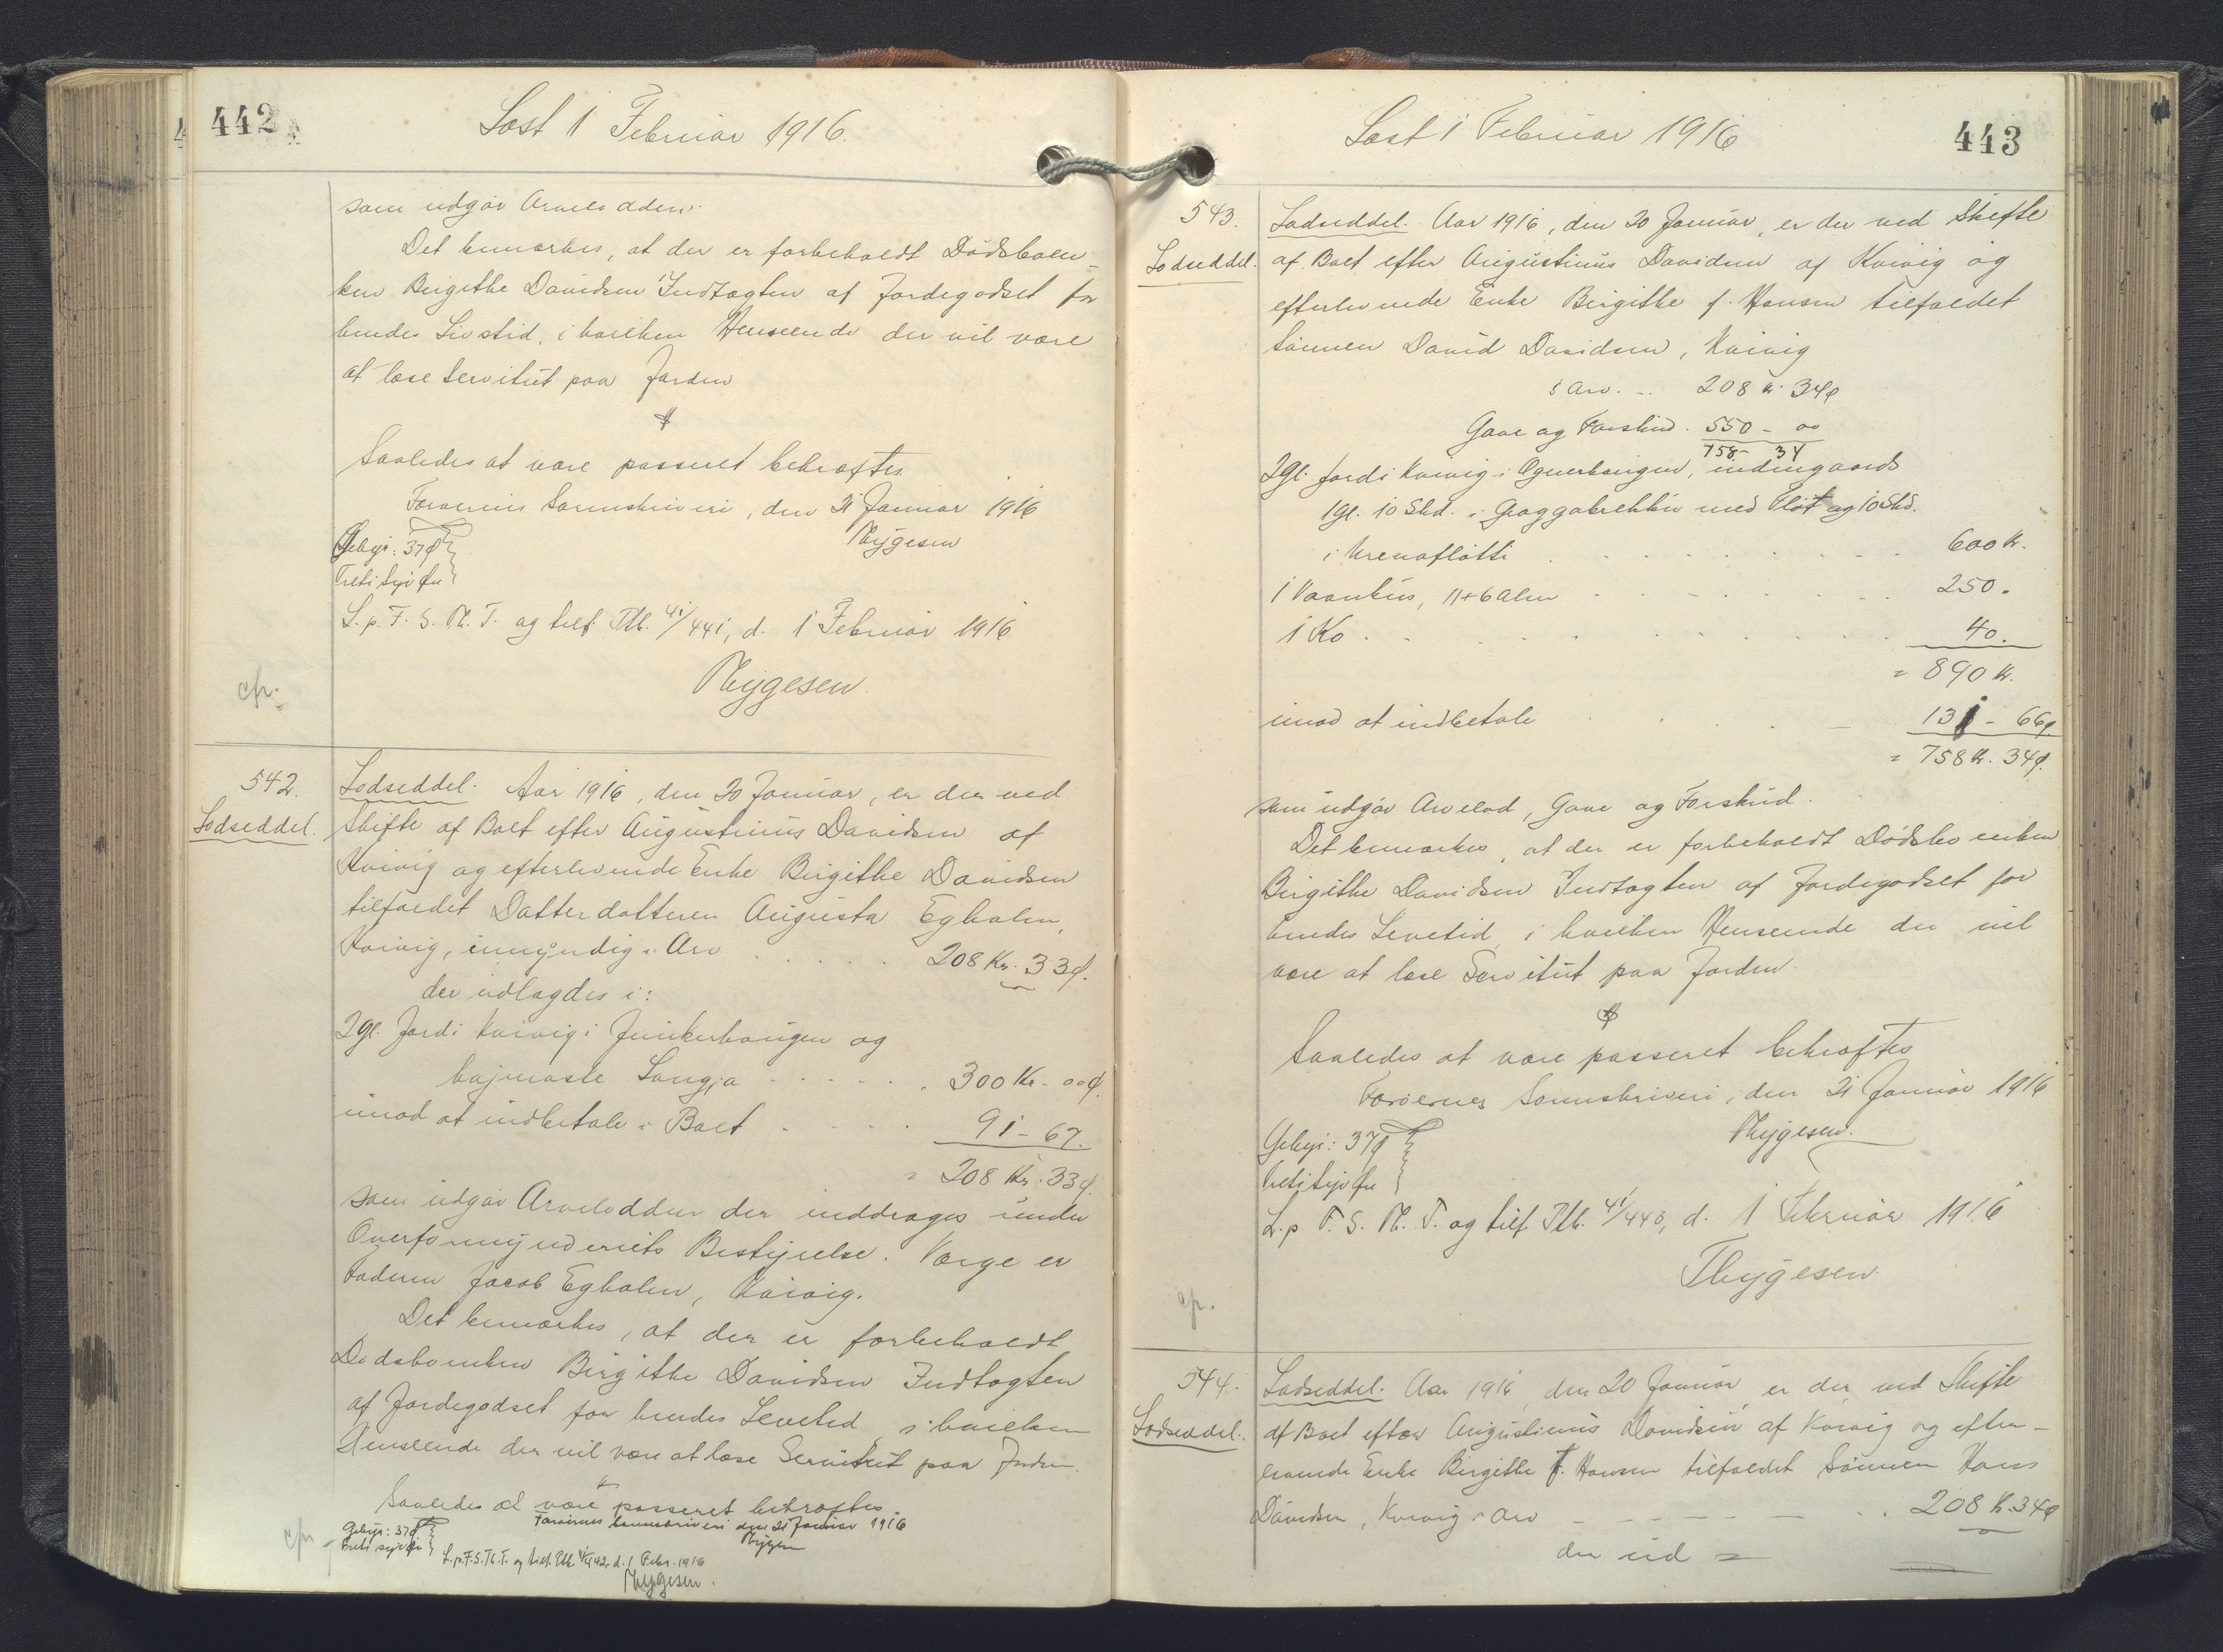 442
Læst 1 Februar 1916.
som udgør Arvelodden.
Det bemærkes, at der er forbeholdt Dødsboen-
ken Birgithe Davidsen Indtægten af Jordegodset for
hendes Livstid, i hvilken Henseende der vil være
at læse Servitut paa Jorden
Saaledes at være passeret bekræftes.
Færøernes Sorenskriveri, den 21 Januar 1916
Thygesen
Gebyr: 37 ø
Treti syv Øre
L. p. F. S. Th. T. og tilf. Ptb. 41/441, d. 1 Februar 1916
Thygesen
cfr.
542.
Lodseddel.
Lodseddel. Aar 1916, den 20 Januar, er der ved
Skifte af Boet efter Augustinus Davidsen af
Kvivig og efterlevende Enke Birgithe Davidsen
tilfaldet Datterdatteren Augusta Egholm,
Kvivig, umyndig i Arv . . . . . 208 Kr. 33 ø.
der udlagdes i:
2 Gl. Jord i Kvivig i Junkerhaugen og
Langja . . . . . . 300 Kr. 00 ø.
imod at indbetale i Boet . . . . 91 - 67.
= 208 Kr. 33 ø.
som udgør Arvelodden der inddrages under
Overformynderiets Bestyrelse. Værge er
Faderen Jacob Egholm, Kvivig.
Det bemærkes, at der er forbeholdt
Dødsboenken Birgithe Davidsen Indtægten
af Jordegodset for hendes Levetid, i hvilken
Henseende der vil være at læse Servitut paa Jorden.
Saaledes at være passeret bekræftes.
Færøernes Sorenskriveri den 21 Januar 1916
Thygesen
Gebyr: 37 ø
Treti syv Øre
L. p. F. S. Th. T. og tilf. Ptb. 41/442, d. 1 Febr. 1916
Thygesen.
cfr.
443
Læst 1 Februar 1916
543.
Lodseddel.
Lodseddel. Aar 1916, den 20 Januar, er der ved Skifte
af Boet efter Augustinus Davidsen af Kvivig og
efterlevende Enke Birgithe f. Hansen tilfaldet
Sønnen David Davidsen, Kvivig
i Arv. .. 208 Kr. 34 ø
Gave og Forskud. 550 - 00
758 - 34
2 Gl. Jord i Kvivig i Ognerhaugen, indengaards
1 Gl. 10 Skd. i Graggabrekku med Fløt og 10 Skd.
i . . . . . . . . 600 Kr.
1 Vaanhus, 11+6 Alen . . . . . . . 250.
1 Ko . . . . . . . . . 40.
= 890 Kr.
imod at indbetale . . . . 131 - 66 ø.
= 758 Kr. 34 ø.
som udgør Arvelod, Gave og Forskud.
Det bemærkes, at der er forbeholdt Dødsboenken
Birgithe Davidsen Indtægten af Jordegodset for
hendes Levetid, i hvilken Henseende der vil
være at læse Servitut paa Jorden
Saaledes at være passeret bekræftes
Færøernes Sorenskriveri, den 21 Januar 1916
Thygesen.
Gebyr: 37 ø
Treti syv Øre
L. p. F. S. Th. T. og tilf. Ptb. 41/443, d. 1 Februar 1916
Thygesen.
cfr.
544.
Lodseddel.
Lodseddel. Aar 1916, den 20 Januar er der ved Skifte
af Boet efter Augustinus Davidsen af Kvivig og efter-
levende Enke Birgithe f. Hansen tilfaldet Sønnen Hans
Davidsen, Kvivig i Arv - - - - - . . 208 Kr. 34 ø
der ud =